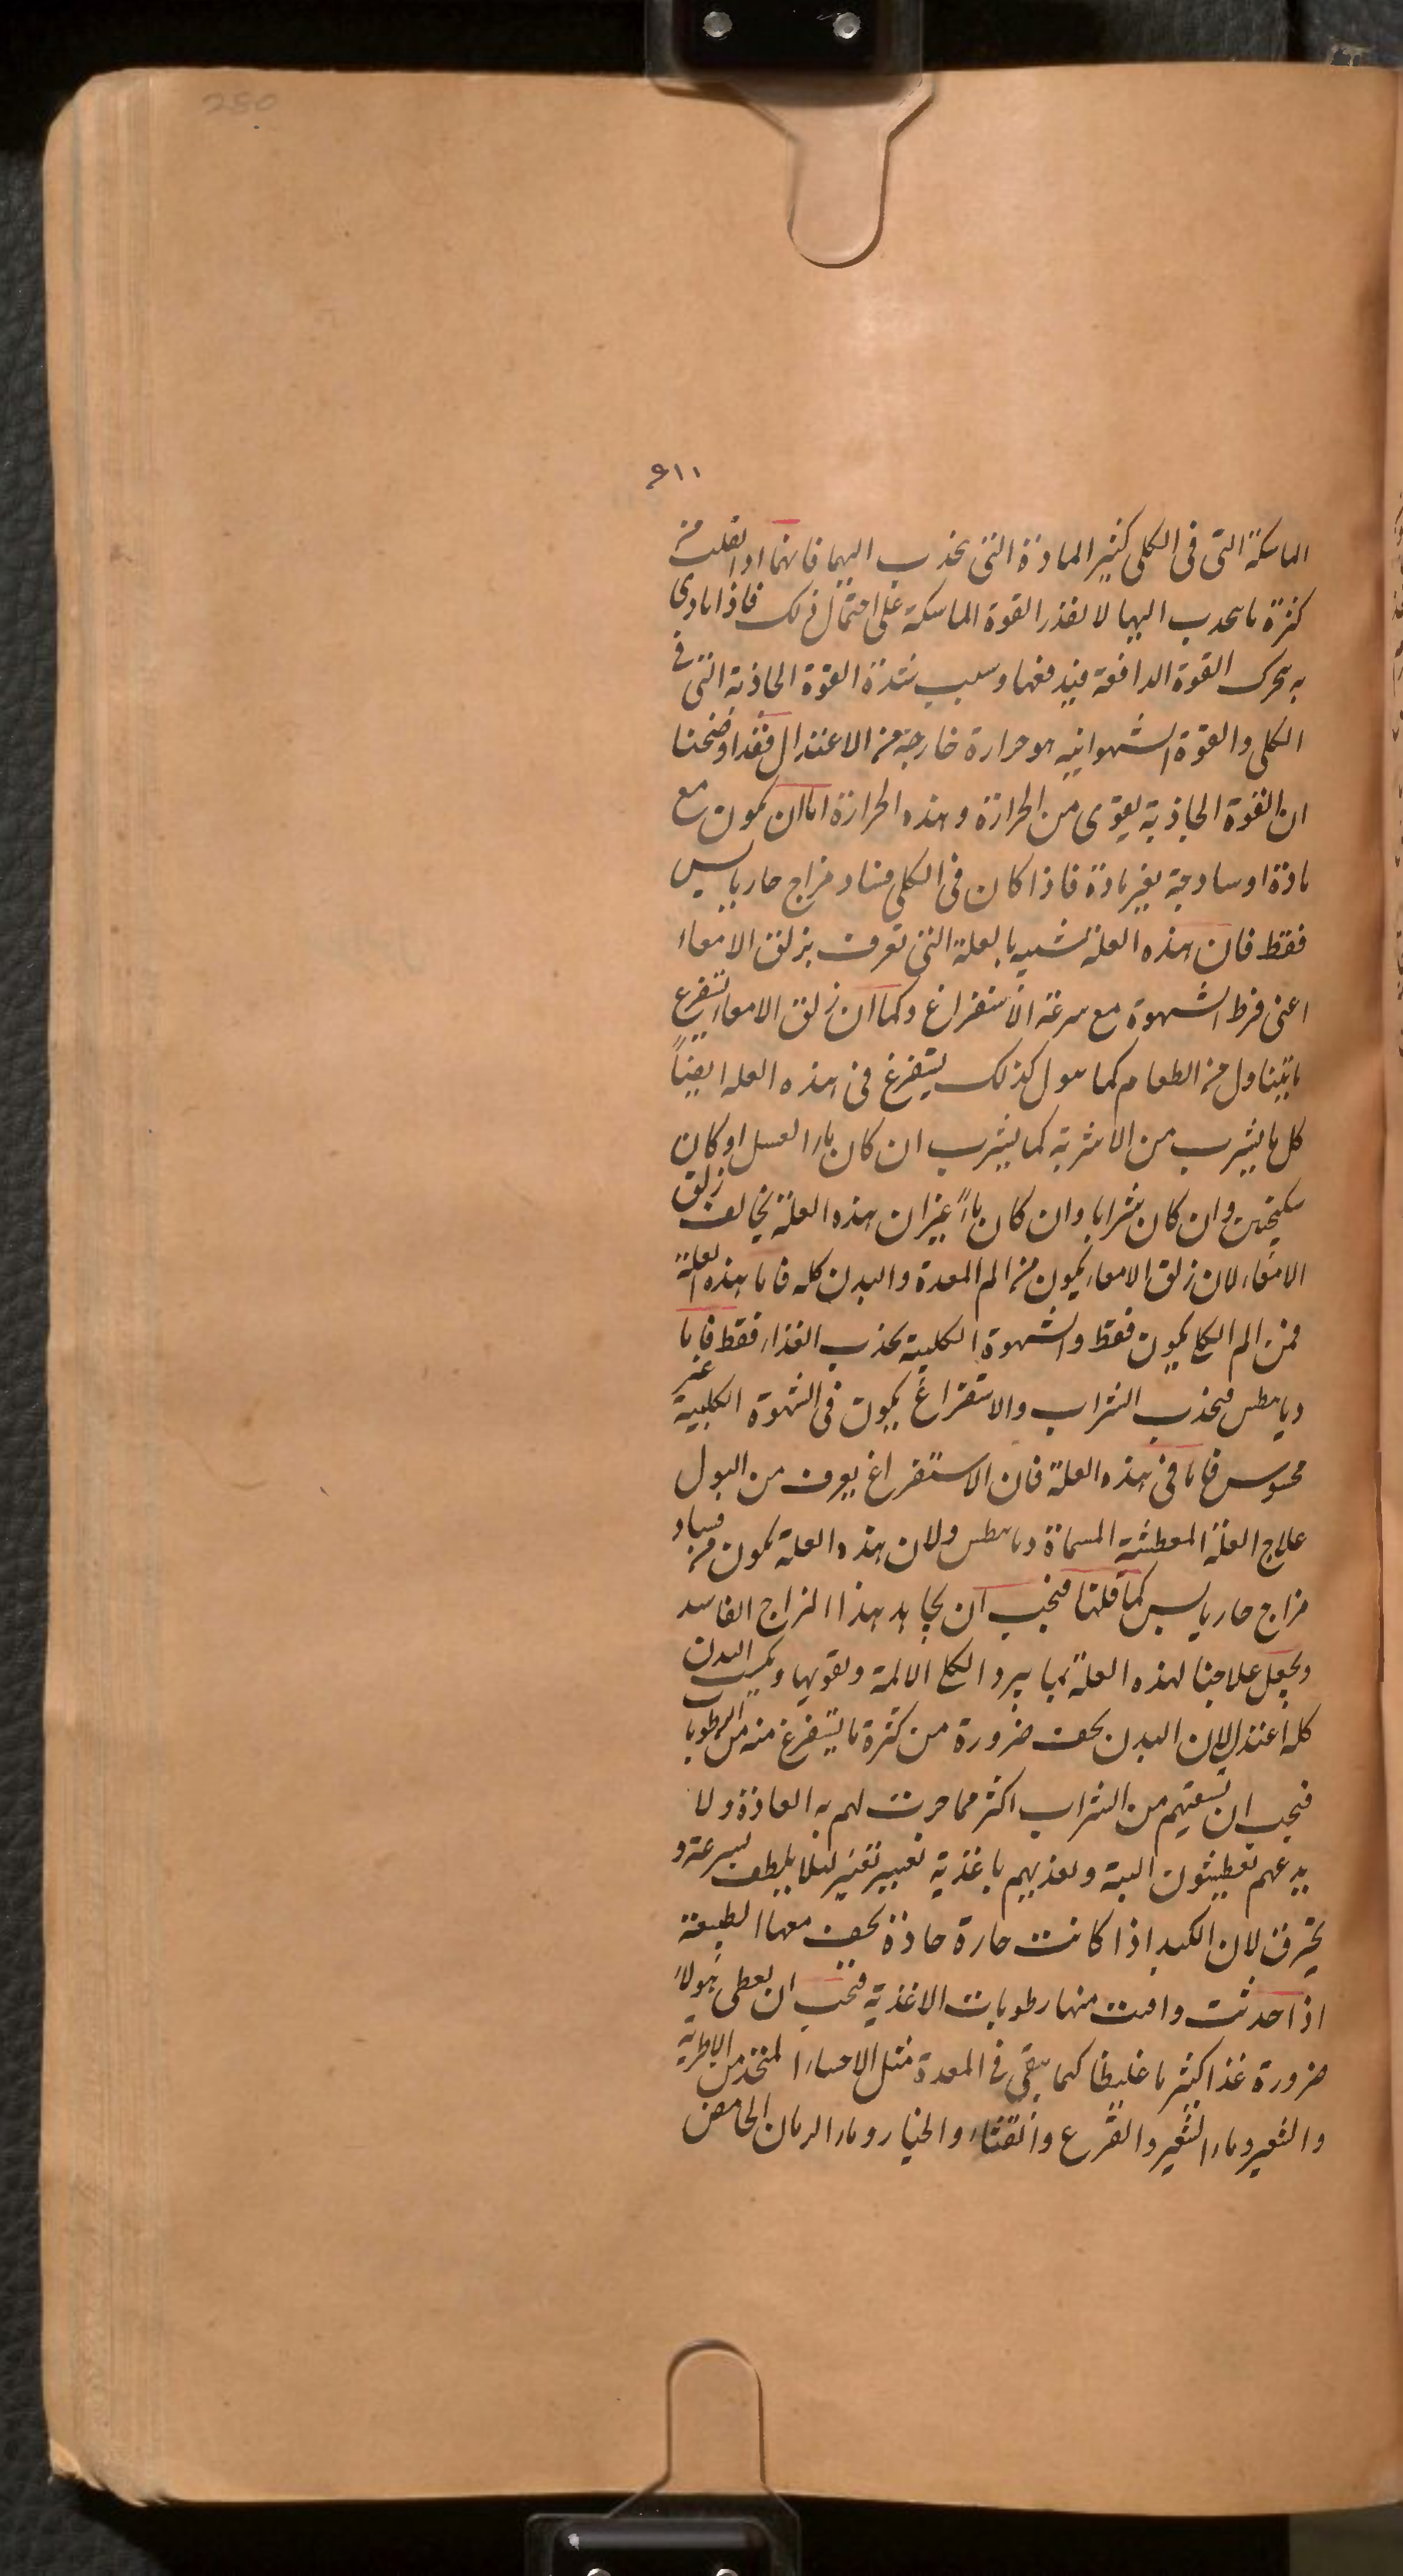 250
٩١١
الماسكة التى فى الكلى كثير المادة التى تجذب اليها فانها اذا ثقلت من
كثرة ما ينجذب اليها لا تقدر القوة الماسكة على احتمال ذلك فاذا تاذى
به تحرك القوة الدافعة فيدفعها وسبب شدة القوة الجاذبة التى فى
الكلى والقوة الشهوانيه هو حرارة خارجة من الاعتدال فقد اوضحنا
ان القوة الجاذبة يقوى من الحرارة وهذه الحرارة اما ان يكون مع
مادة او ساذجة بغير مادة فاذا كان فى الكلى فساد مزاج حار يابس
فقط فان هذه العلة شبيه بالعلة التى تعرف بزلق الامعاء
اعنى فرط الشهوة مع سرعة الاستفراغ وكما ان زلق الامعاء يستفرغ
ما يتناول من الطعام كما هو كذلك يستفرغ فى هذه العله ايضاً
كل ما يشرب من الاشربة كما يشرب ان كان ماء العسل او كان
سكنجبين وان كان شرابا وان كان ماءً غير ان هذه العلة يخالف زلق
الامعاء لان زلق الامعاء يكون من الم المعدة والبدن كله فاما هذه العلة
فمن الم الكلى يكون فقط والشهوة الكلبية تجذب الغذاء فقط فاما
ديابيطس فيجذب الشراب والاستفراغ يكون فى الشهوة الكلبية غير
محسوس فاما فى هذه العلة فان الاستفراغ يعرف من البول
علاج العلة المعطشة المسماة ديابيطس ولان هذه العلة يكون من فساد
مزاج حار يابس كما قلنا فيجب ان يجاهد هذا المزاج الفاسد
ونجعل علاجنا لهذه العلة بما يبرد الكلى الالمة ويقويها ويكسب البدن
كله اعتدالا لان البدن يجف ضرورة من كثرة ما يستفرغ منه من الرطوبات
فيجب ان نسقيهم من الشراب اكثر مما جرت لهم به العادة ولا
يدعهم يعطشون البتة ويغذيهم باغذية تعسر تغير لئلا يلطف بسرعة و
يحترق لان الكبد اذا كانت حارة حادة يجف معها الطبيعة
اذا حدثت وافنت منها رطوبات الاغذية فيجب ان يعطى هولاء
ضرورة غذا كثيرا غليظا كيما يبقى فى المعدة مثل الاحساء المتخذ من الاطرية
والشعير وماء الشعير والقرع والقثاء والخيار وماء الرمان الحامض